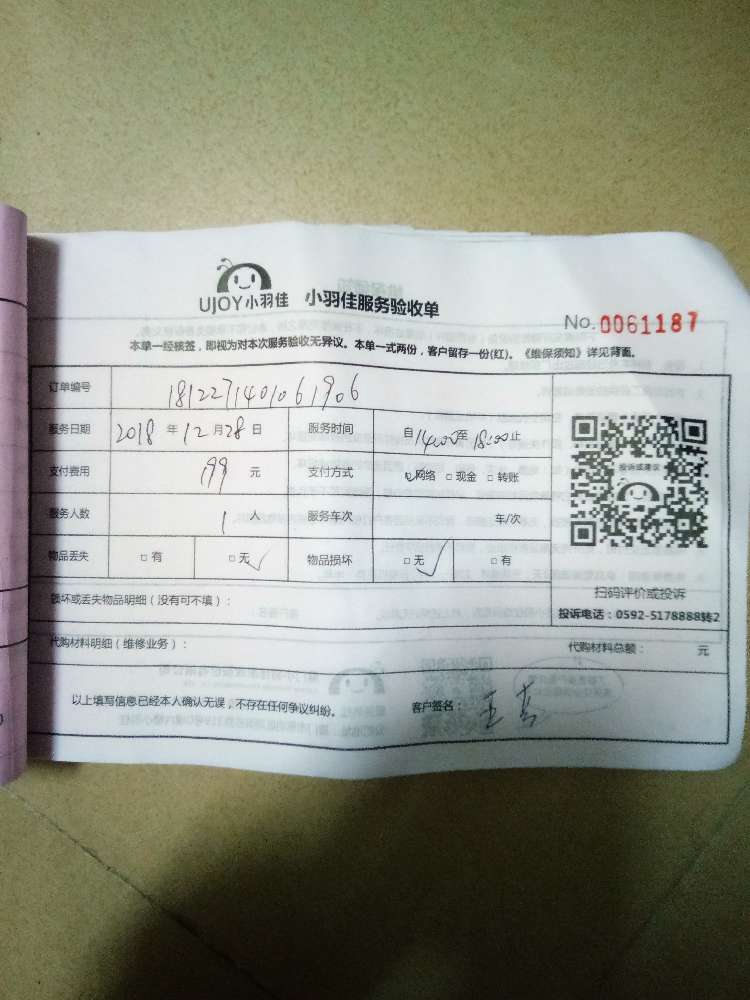 UJOY小羽佳 小羽佳服务验收单
No. 0061187
本单一经核签，即视为对本次服务验收无异议。本单一式两份，客户留存一份(红)。《维保须知》详见背面。
订单编号 1812271401061906
服务日期 2018 年 12 月 28 日 服务时间 自 14:00 至 18:00 止
支付费用 199 元 支付方式 网络 □ 现金 □ 转账
投诉或建议
服务人数 1 人 服务车次 车/次
物品丢失 □ 有 □ 无 ✓ 物品损坏 □ 无 ✓ □ 有
扫码评价或投诉
损坏或丢失物品明细（没有可不填）：
投诉电话：0592-5178888转2
代购材料明细（维修业务）： 代购材料总额： 元
以上填写信息已经本人确认无误，不存在任何争议纠纷。 客户签名： 王